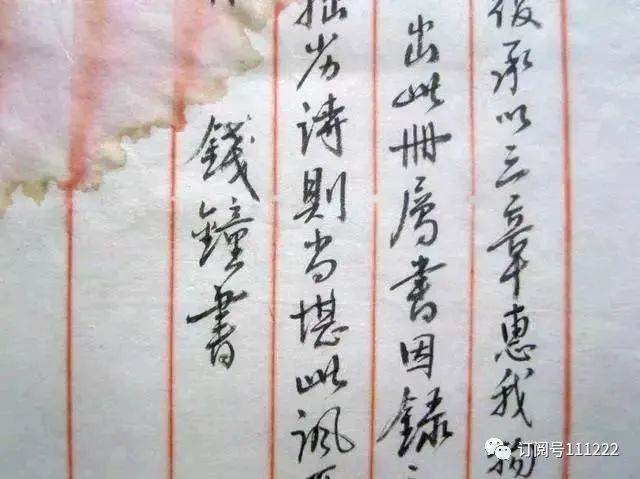 復承以三章惠我
出此冊屬書因錄
拙劣詩則尚堪此諷
錢鍾書
订阅号111222